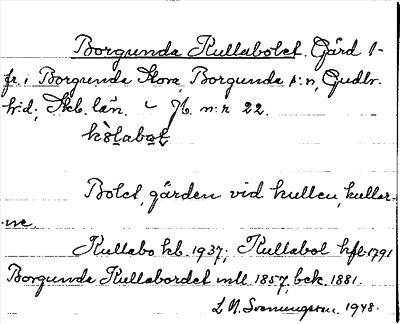 Borgunda Kullabolet. Gård 1-
fr. i Borgunda Stora, Borgunda s:n, Gudh.
h:d; Skb. län. J. n:r 22.
Bolet, gården vid kullen, kullar-
ne.
Kullabo kb. 1937; Kullabol hfl. 1791
Borgunda Kullabordet mtl. 1857, beck. 1881.
L. N. Svenungsson 1948.